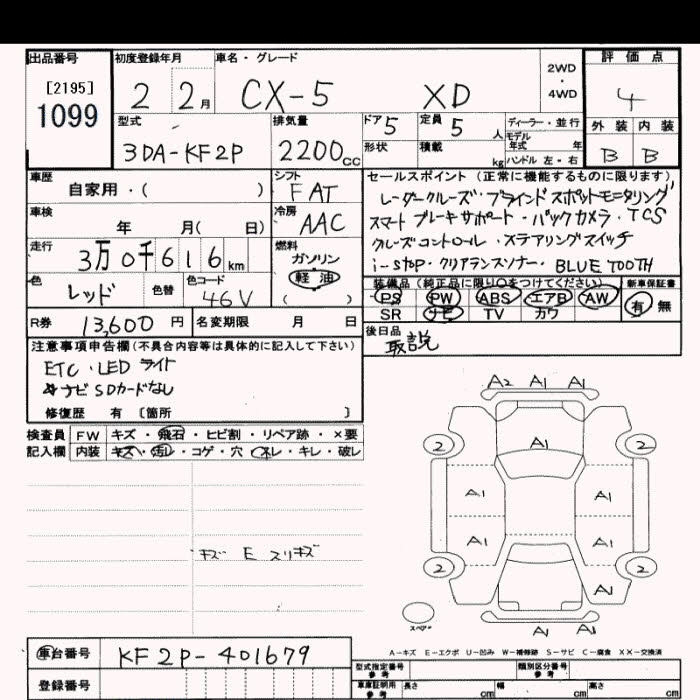 出品番号 初度登録年月 車名・グレード 評価点
[2195]
1099
2 2月 CX-5 XD 2WD・4WD 4
型式 排気量 ドア 5 定員 5人 ディーラー・並行 外装 内装
モデル年式 年
3DA-KF2P 2200cc 形状 積載 kg ハンドル 左・右 B B
車歴 自家用・( ) シフト FAT セールスポイント (正常に機能するものに限ります)
レーダークルーズ・ブラインドスポットモニタリング
車検 年 月( 日) 冷房 AAC スマートブレーキサポート・バックカメラ・TCS
走行 3万0千616km 燃料 ガソリン 軽油 ( ) クルーズコントロール・ステアリングスイッチ
i-stop・クリアランスソナー・BLUETOOTH
色 レッド 色替 色コード 46V 装備品(純正品に限り○をつけてください) 新車保証書
PS PW ABS エアB AW 有 無
SR ナビ TV カワ
R券 13,600円 名変期限 月 日 後日品
取説
注意事項申告欄(不具合内容等は具体的に記入して下さい)
ETC・LEDライト
ナビSDカードなし
修復歴 有 [箇所 ]
A2 A1 A1
検査員 FW キズ・飛石・ヒビ割・リペア跡・×要
記入欄 内装 キズ・汚レ・コゲ・穴・スレ・キレ・破レ
2 A1 2
A1 A1
キズ E スリキズ
A1 A1
2 2
A1
スペアー
A1 A1
A-キズ E-エクボ U-凹み W-補修跡 S-サビ C-腐食 XX-交換済
車台番号 KF2P-401679
型式指定番号 参考 類別区分番号 参考
登録番号 車庫証明用 参考 長さ cm 幅 cm 高さ cm